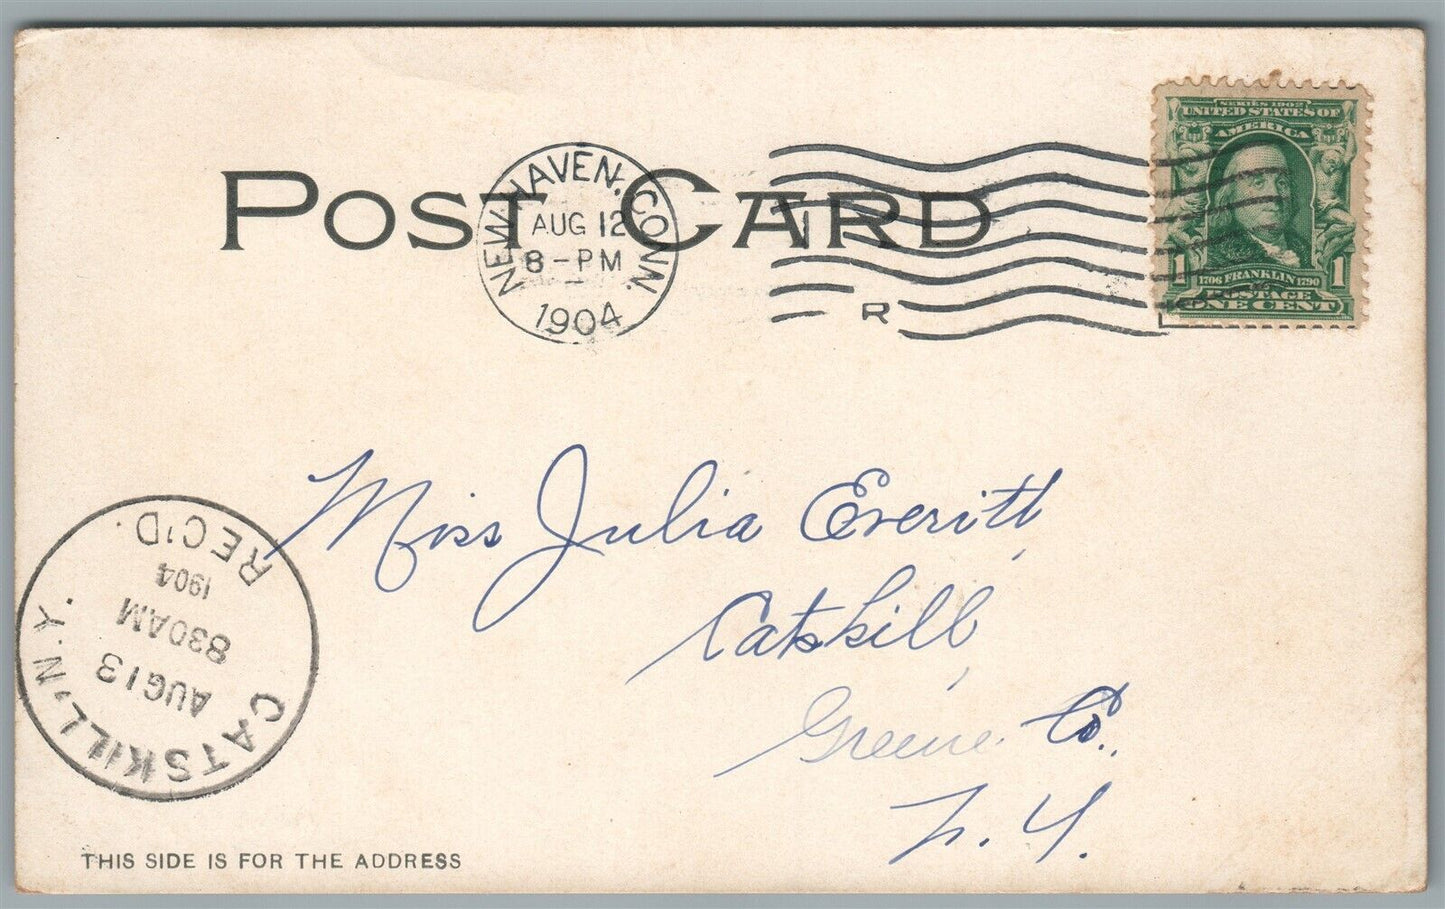 POST CARD
NEW HAVEN, CONN.
AUG 12
8-PM
1904
R
SERIES 1902
UNITED STATES OF
AMERICA
1 1706 FRANKLIN 1790 1
POSTAGE
ONE CENT
Miss Julia Everitt,
Catskill,
Greene Co.,
N. Y.
CATSKILL, N.Y.
AUG 13
830AM
1904
REC'D.
THIS SIDE IS FOR THE ADDRESS